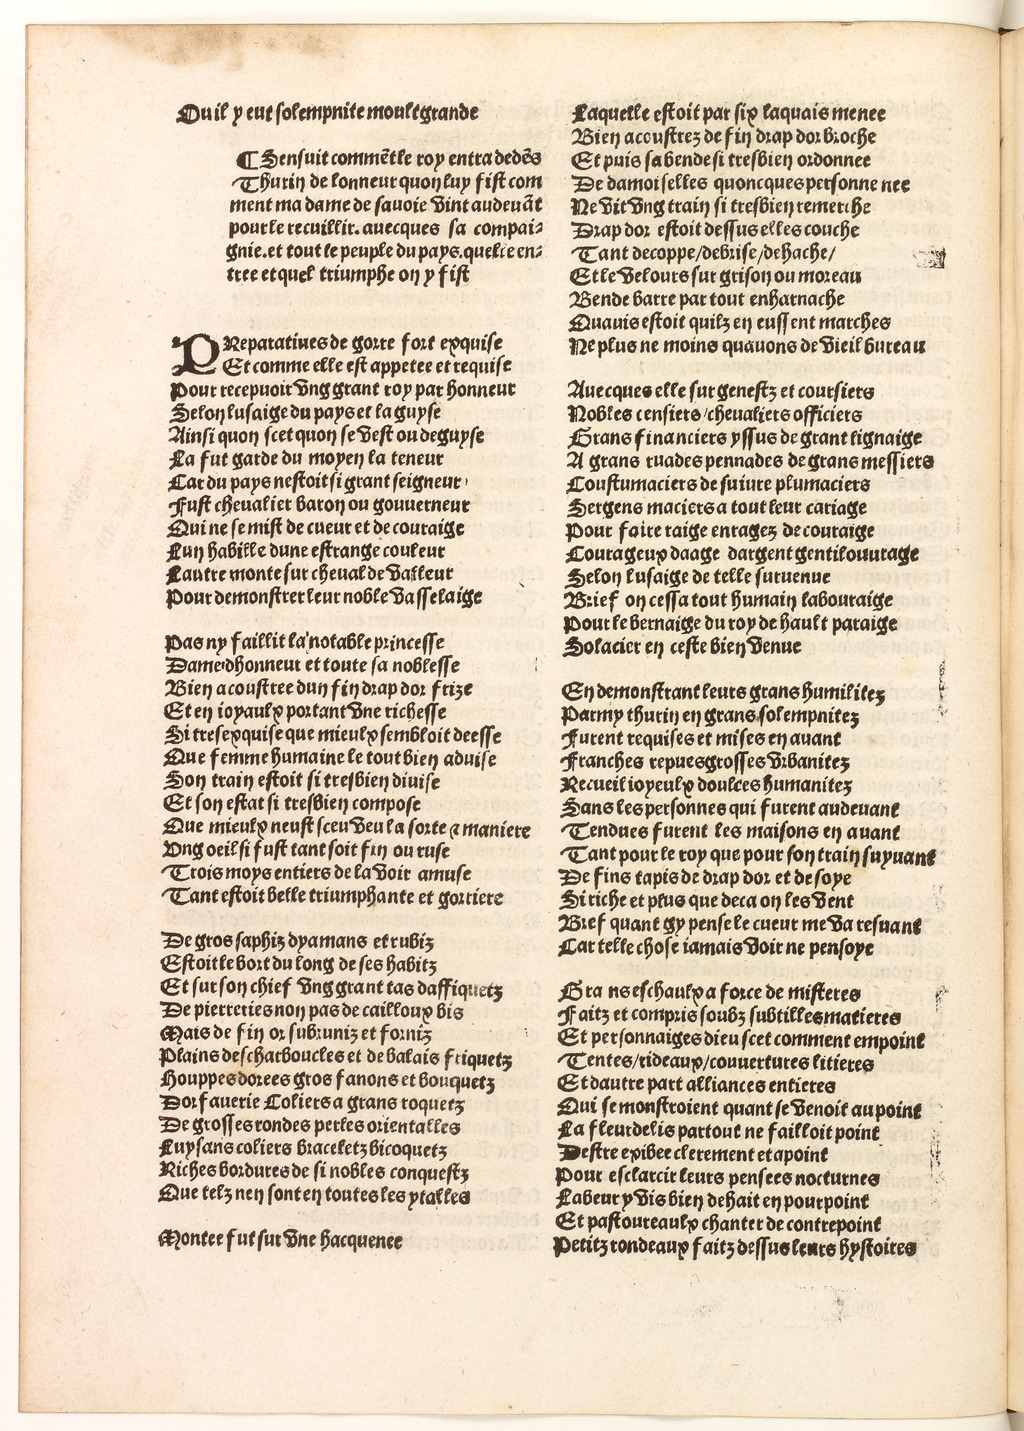 Ou il y eut solempnite moult grande
¶ Sensuit commẽt le roy entra dedẽs
Thurin de lonneur quon luy fist com
ment ma dame de savoie vint audeuãt
pour le recuillir. auecques sa compai⸗
gnie. et tout le peuple du pays. quelle en⸗
tree et quel triumphe on y fist
PReparatiues de gorre fort exquise
Et comme elle est appetee et requise
Pour recepuoir vng grant roy par honneur
Selon lusaige du pays et la guyse
Ainsi quon scet quon se vest ou deguyse
La fut garde du moyen la teneur
Car du pays nestoit si grant seigneur
Fust chevalier baron ou gouverneur
Qui ne se mist de cueur et de couraige
Lun habille dune estrange couleur
Lautre monte sur cheval de valleur
Pour demonstrer leur noble vasselaige
Pas ny faillit la notable princesse
Dame dhonneur et toute sa noblesse
Bien acoustree dun fin drap dor frize
Et en ioyaulx portant vne richesse
Si tresexquise que mieulx sembloit deesse
Que femme humaine le tout bien aduise
Son train estoit si tresbien diuise
Et son estat si tresbien compose
Que mieulx neust sceu veu la sorte ⁊ maniere
Vng oeil si fust tant soit fin ou ruse
Trois moys entiers de la voir amuse
Tant estoit belle triumphante et gorriere
De gros saphiz dyamans et rubiz
Estoit le bort du long de ses habitz
Et sur son chief vng grant tas daffiquetz
De pierreries non pas de cailloux bis
Mais de fin or subruniz et forniz
Plains descharboucles et de balais friquetz
Houppes dorees gros fanons et bouquetz
Dorfauerie Coliers a grans roquetz
De grosses rondes perles orientalles
Luysans coliers braceletz bicoquetz
Riches bordures de si nobles conquestz
Que telz nen sont en toutes les ytalles
Montee fut sur vne hacquenee
Laquelle estoit par six laquais menee
Bien accustrez de fin drap dor broche
Et puis sa bende si tresbien ordonnee
De damoiselles quoncques personne nee
Ne vit vng train si tresbien remerche
Drap dor estoit dessus elles couche
Tant decoppe/debrise/dehache/
Et le velours sur grison ou moreau
Bende barre par tout enharnache
Quauis estoit quilz en eussent marches
Ne plus ne moins quauons de vieil bureau
Auecques elle sur genestz et coursiers
Nobles censiers/chevaliers officiers
Grans financiers yssus de grant lignaige
A grans ruades pennades de grans messiers
Coustumaciers de suiure plumaciers
Sergens maciers a tout leur cariage
Pour faire raige enragez de couraige
Courageux daage dargent gentil ouurage
Selon lusaige de telle suruenue
Brief on cessa tout humain labouraige
Pour le bernaige du roy de hault paraige
Solacier en ceste bien venue
En demonstrant leurs grans humilitez
Parmy thurin en grans solempnitez
Furent requises et mises en auant
Franches repues grosses vrbanitez
Recueil ioyeulx doulces humanitez
Sans les personnes qui furent audeuant
Tendues furent les maisons en auant
Tant pour le roy que pour son train suyuant
De fins tapis de drap dor et de soye
Si riche et plus que deca on les vent
Bref quant gy pense le cueur me va resuant
Car telle chose iamais voir ne pensoye
Grans eschaulx a force de misteres
Faitz et compris soubz subtilles matieres
Et personnaiges dieu scet comment empoint
Tentes/rideaux/couvertures litieres
Et dautre part alliances entieres
Qui se monstroient quant se venoit au point
La fleurdelis partout ne failloit point
Destre exibee clerement et apoint
Pour esclarcir leurs pensees nocturnes
Labeur y vis bien dehait en pourpoint
Et pastoureaulx chanter de contrepoint
Petitz rondeaux faitz dessus leurs hystoires